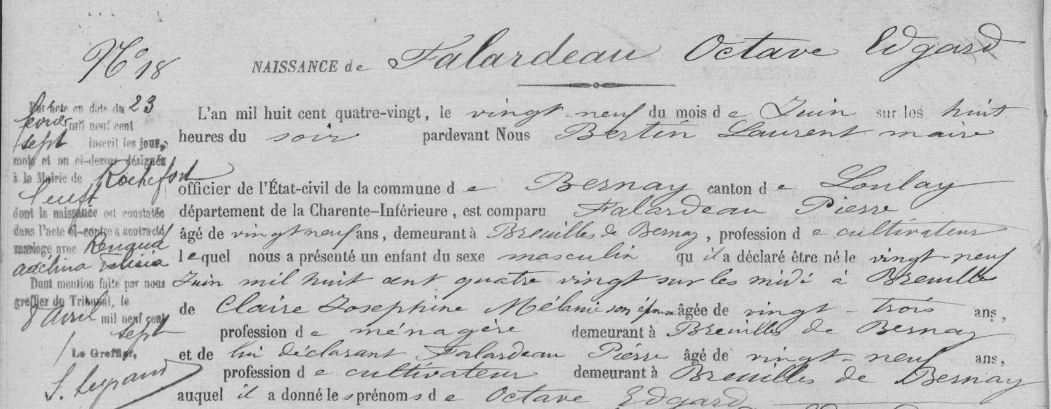 N° 18
NAISSANCE de Falardeau Octave Edgard
Par acte en date du 23
février mil neuf cent
sept inscrit les jour,
mois et an ci-dessus désignés
à la Mairie de Rochefort
dont la naissance est constatée
dans l'acte ci-contre a contracté
mariage avec Renaud
Dont mention faite par nous
greffier du Tribunal, le
8 avril mil neuf cent
sept
Le Greffier,
L'an mil huit cent quatre-vingt, le vingt-neuf du mois de Juin sur les huit
heures du soir pardevant Nous Bertin Laurent maire
officier de l'État-civil de la commune de Bernay canton de Loulay
département de la Charente-Inférieure, est comparu Falardeau Pierre
âgé de vingt neuf ans, demeurant à Breuilles de Bernay, profession de cultivateur
lequel nous a présenté un enfant du sexe masculin qu'il a déclaré être né le vingt-neuf
Juin mil huit cent quatre vingt sur les midi à Breuille
de Claire Josephine Mélanie son épouse âgée de vingt-trois ans,
profession de ménagère demeurant à Breuilles de Bernay
et de lui déclarant Falardeau Pierre âgé de vingt-neuf ans,
profession de cultivateur demeurant à Breuilles de Bernay
auquel il a donné les prénoms de Octave Edgard